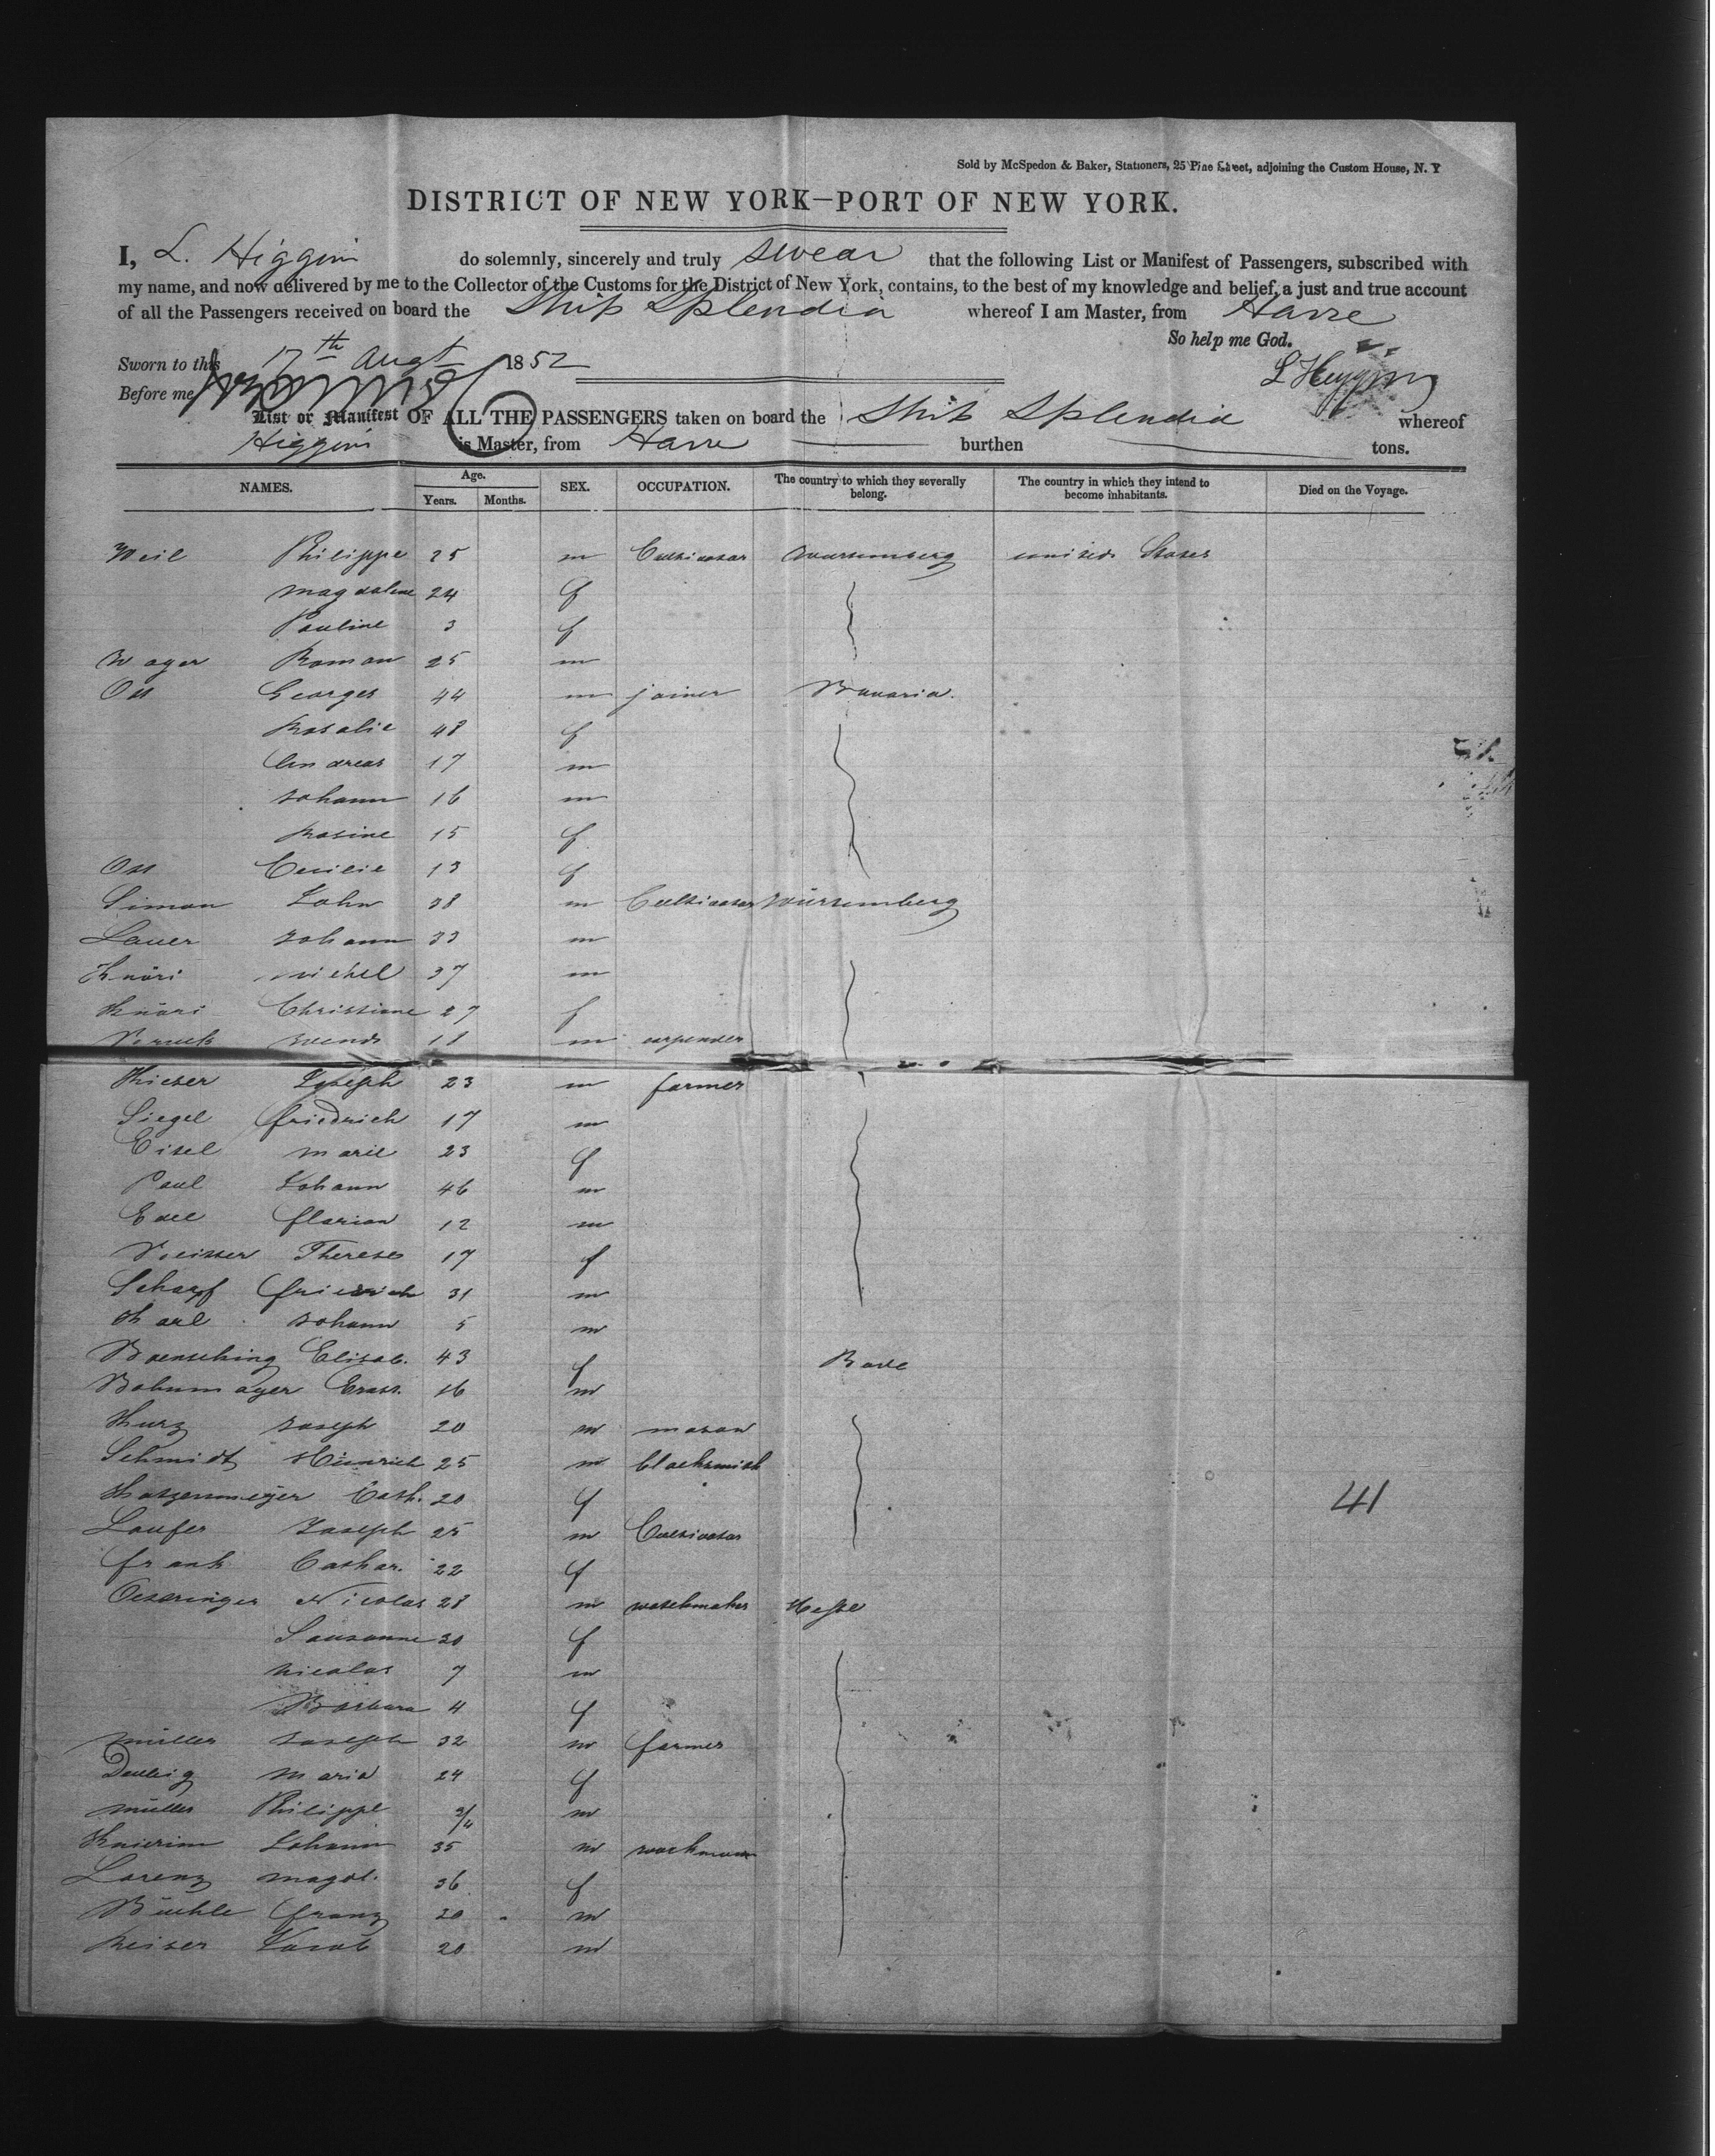 Sold by McSpedon & Baker, Stationers, 25 Pine Street, adjoining the Custom House, N. Y
DISTRICT OF NEW YORK—PORT OF NEW YORK.
I, L. Higgins do solemnly, sincerely and truly swear that the following List or Manifest of Passengers, subscribed with
my name, and now delivered by me to the Collector of the Customs for the District of New York, contains, to the best of my knowledge and belief, a just and true account
of all the Passengers received on board the Ship Splendid whereof I am Master, from Havre
So help me God.
Sworn to this 17th Augt 1852
L Higgins
Before me
List or Manifest OF ALL THE PASSENGERS taken on board the Ship Splendid whereof
Higgins is Master, from Havre burthen tons.
NAMES. Age. Years. Months. SEX. OCCUPATION. The country to which they severally belong. The country in which they intend to become inhabitants. Died on the Voyage.
Weil Philippe 25 m Cultivator Wurtemberg united States
Magdalene 24 f
Pauline 3 f
Wager Roman 25 m
Ott Georges 44 m joiner Bavaria.
Rosalie 48 f
Andreas 17 m
Johann 16 m
Rosine 15 f
Ott Cecilie 13 f
Simon John 38 m Cultivator Würtemberg
Lauer Johann 33 m
Knöri Michel 37 m
Knöri Christiane 27 f
18 m carpenter
Kieser Joseph 23 m farmer
Siegel friedrich 17 m
Eisel Marie 23 f
Paul Johann 46 m
Edel florian 12 m
Therese 17 f
Scharf friedrich 31 m
Karl Johann 5 m
Baensching Elisab. 43 f Bade
Bohnmayer 16 m
Kurz Joseph 20 m mason
Schmidt Heinrich 25 m blacksmith
Katzenmeyer Cath. 20 f
Laufer Joseph 25 m Cultivator
frank Cathar. 22 f
41
Oestringer Nicolas 28 m watchmaker Hesse
Sausanne 30 f
Nicolas 7 m
Barbara 4 f
Müller Joseph 32 m farmer
Maria 24 f
Müller Philippe 3/4 m
Knierim Johann 35 m workman
Lorenz Magd. 36 f
Büchle franz 20 m
Reiser Jacob 20 m